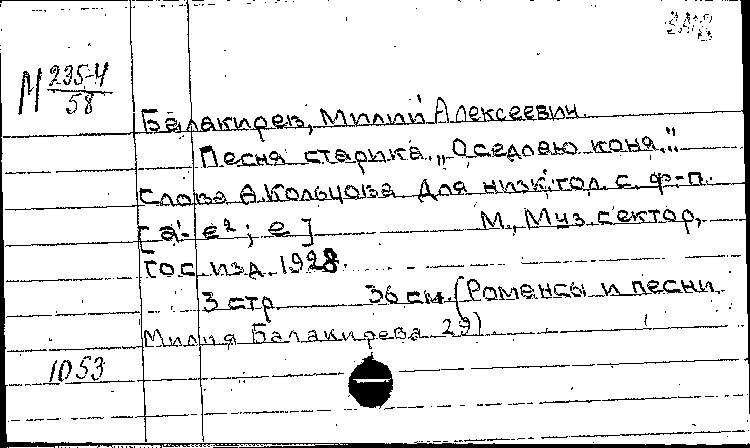 М 235-4
58
Балакирев, Милий Алексеевич.
Песня старика. „Оседлаю коня."
Слова А.Кольцова Для низк.гол. с. ф-п.
[a-e²; e] М., Муз.сектор,
Гос.изд. 1928.
3 стр. 36 см. (Романсы и песни
Милия Балакирева 29).
1053